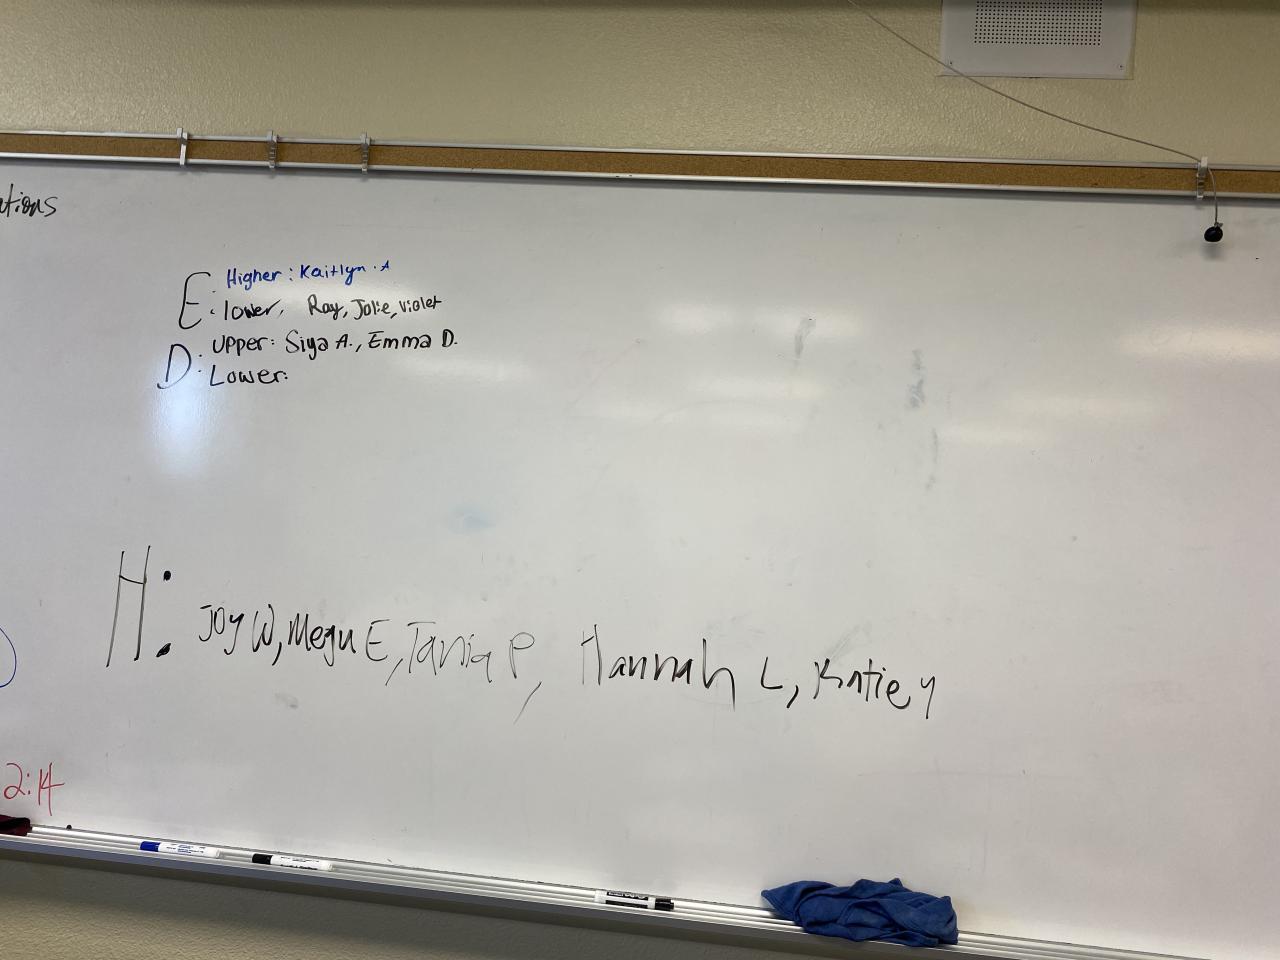 ations
E: Higher: Kaitlyn. A
: lower, Ray, Jolie, Violet
D: Upper: Siya A., Emma D.
: Lower:
H: Joy W, Megu E, Tania P, Hannah L, Katie Y
2:14